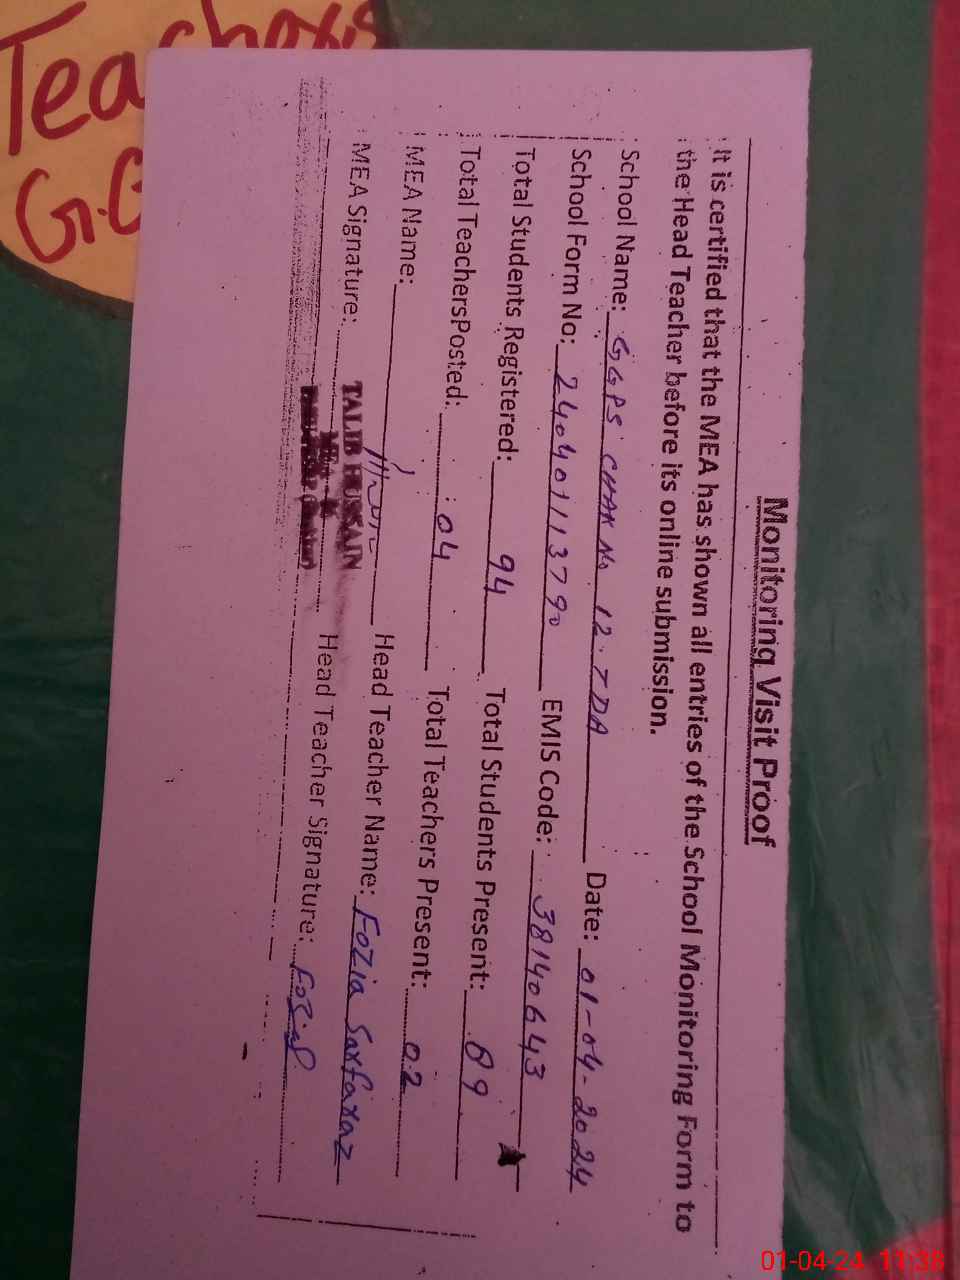 Teachers
G.G
Monitoring Visit Proof
It is certified that the MEA has shown all entries of the School Monitoring Form to
the Head Teacher before its online submission.
School Name: GGPS CHAK No 12.TDA Date: 01-04-2024
School Form No: 24040113790 EMIS Code: 38140643
Total Students Registered: 94 Total Students Present: 89
Total TeachersPosted: 04 Total Teachers Present: 02
MEA Name: Head Teacher Name: Fozia Sarfaraz
MEA Signature: TALIB HUSSAIN Head Teacher Signature: Fozia
01-04-24 11:38